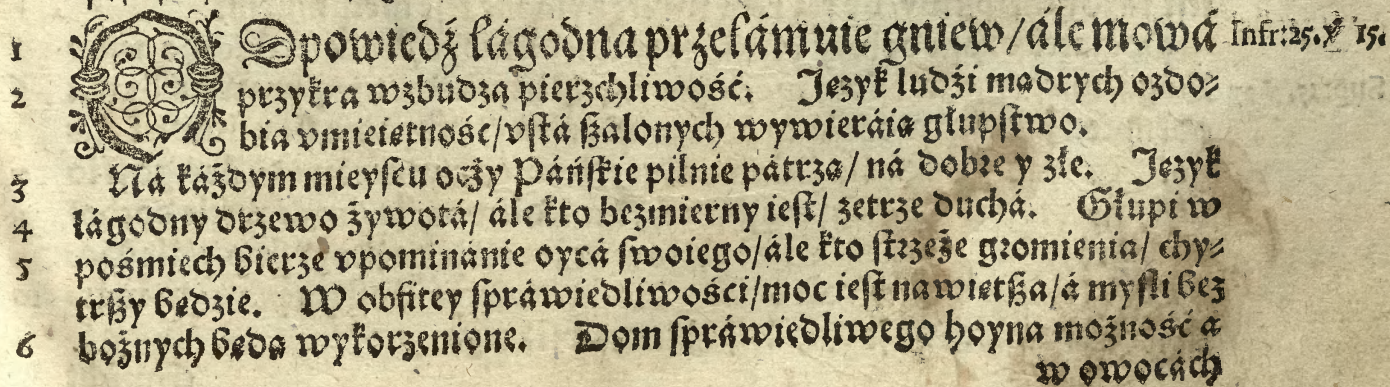 1 ODpowiedź łágodna przełámuie gniew/ ále mowá Infr: 25. v 15.
2 przykra wzbudza pierzchliwość. Język ludźi mądrych ozdo⸗
bia vmieiętność/ vſtá ßalonych wywieráią głupſtwo.
3 Ná káżdym mieyſcu oczy Páńſkie pilnie pátrzą/ ná dobre y złe. Język
4 łágodny drzewo żywotá/ ále kto bezmierny ieſt/ zetrze duchá. Głupi w
5 pośmiech bierze vpominánie oycá ſwoiego/ ále kto ſtrzeże gromienia/ chy⸗
trßy będzie. W obfitey ſpráwiedliwości/ moc ieſt nawiętßa/ á myſli bez
6 bożnych będą wykorzenione. Dom ſpráwiedliwego hoyna możność a
w owocách